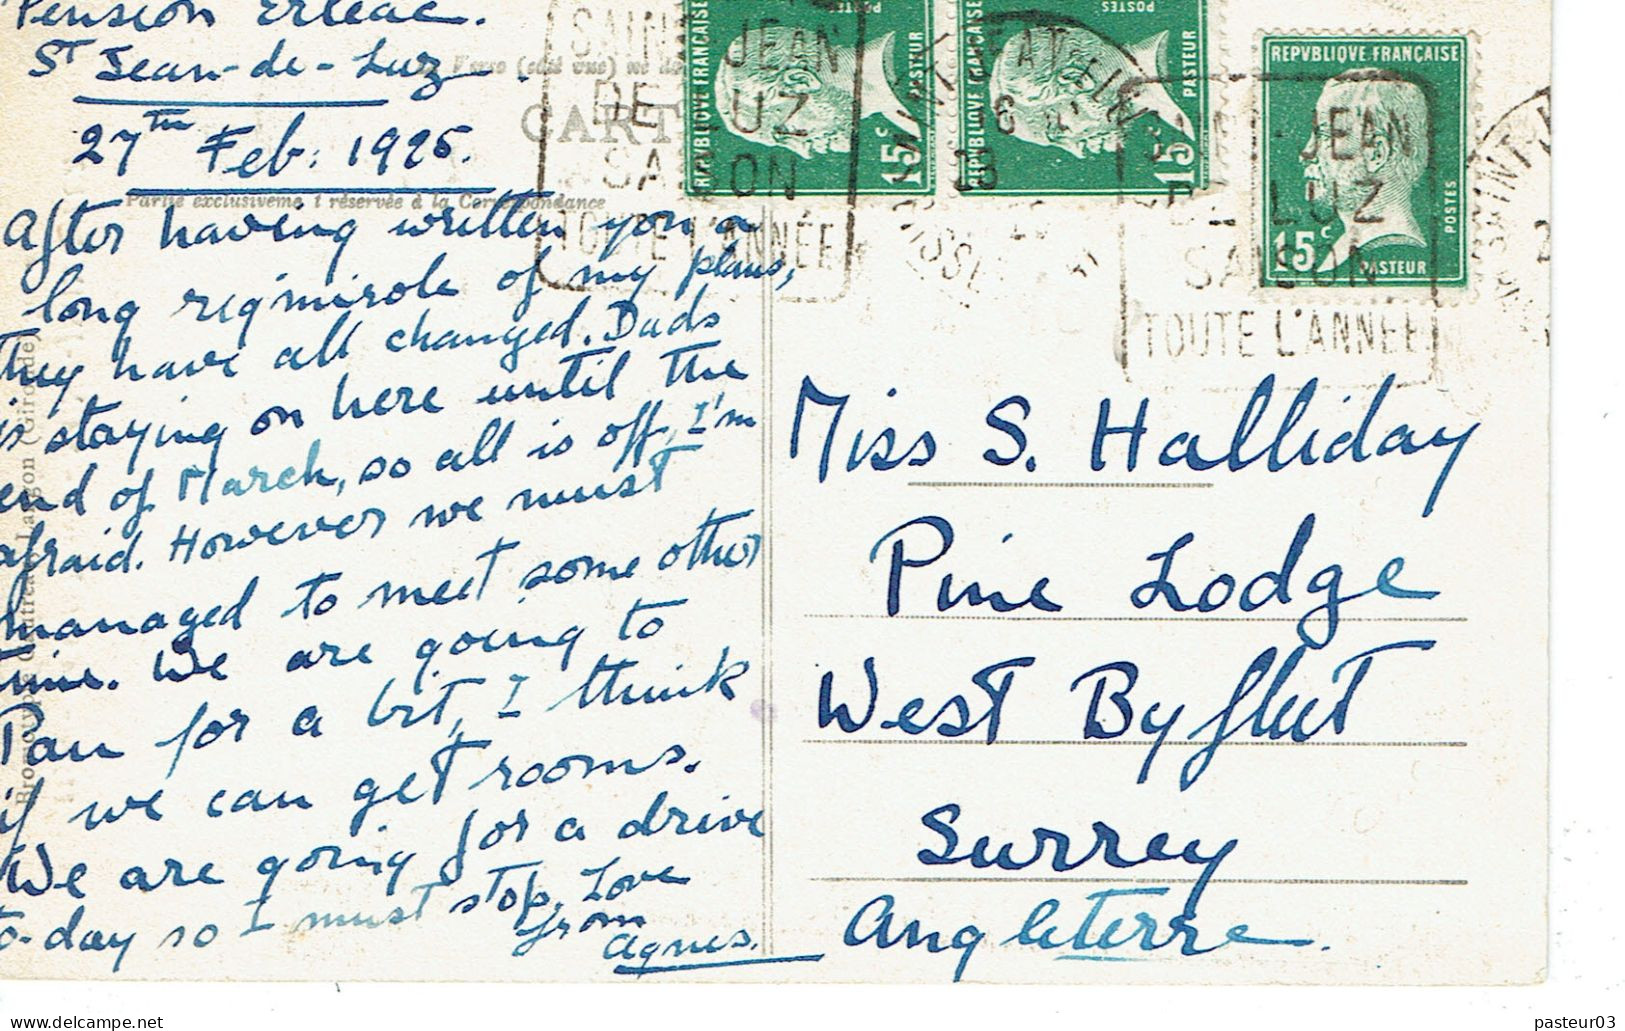 Pension Erleac.
St Jean-de-Luz
27th Feb: 1925.
After having written you a
long rigmirole of my plans,
they have all changed. Dads
is staying on here until the
end of March, so all is off, I'm
afraid. However we must
managed to meet some other
time. We are going to
Pau for a bit, I think
if we can get rooms.
We are going for a drive
to-day so I must stop. Love
from
Agnes.
CART
Partie exclusiveme t réservée à la Correspondance
SAINT JEAN
DE LUZ
SAISON
TOUTE L'ANNÉE
REPVBLIQVE FRANÇAISE
15c
PASTEUR
POSTES
REPVBLIQVE FRANÇAISE
15c
PASTEUR
POSTES
REPVBLIQVE FRANÇAISE
15c
PASTEUR
POSTES
JEAN
DE LUZ
SAISON
TOUTE L'ANNÉE
Miss S. Halliday
Pine Lodge
West Byfleet
Surrey
Angleterre.
pasteur03